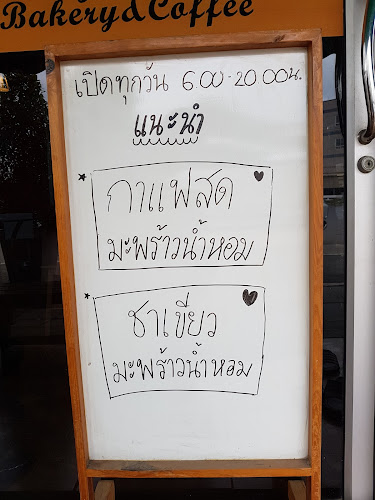 Bakery&Coffee
เปิดทุกวัน 6.00-20.00น.
แนะนำ
กาแฟสด
มะพร้าวน้ำหอม
ชาเขียว
มะพร้าวน้ำหอม